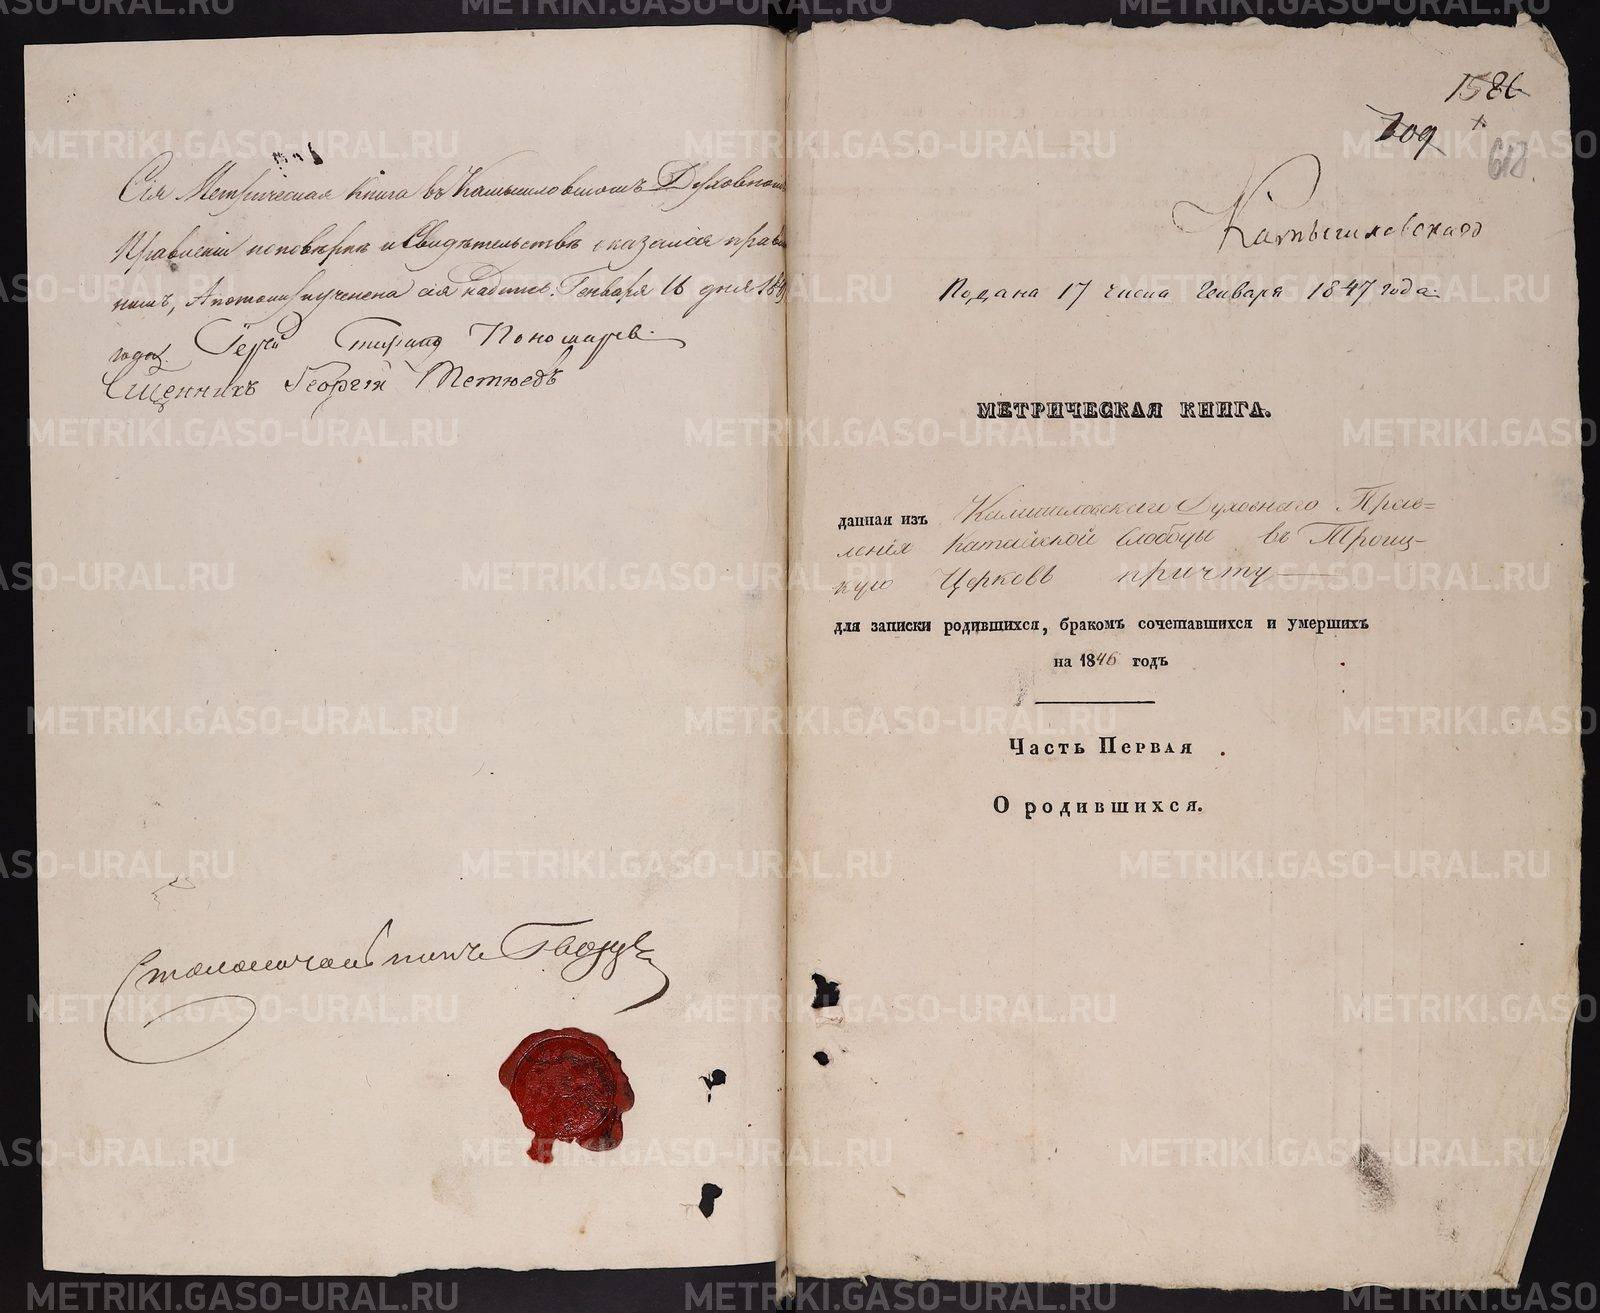 Сія Метрическая Книга въ Камышловскомъ Духовномъ
Правленіи по повѣркѣ и Свидѣтельствѣ оказалась
Генваря 16 дня
года. Іерей Пономарев.
Сщенникъ Георгій
Столоначальникъ
1586
709
618
Камышловскаго
Подана 17 числа Генваря 1847 года.
МЕТРИЧЕСКАЯ КНИГА.
данная изъ Камышловскаго Духовнаго Прав=
ленія Катайской Слободы въ Троиц-
кую Церковь причту
для записки родившихся, бракомъ сочетавшихся и умершихъ
на 1846 годъ
Часть Первая
О родившихся.
METRIKI.GASO-URAL.RU